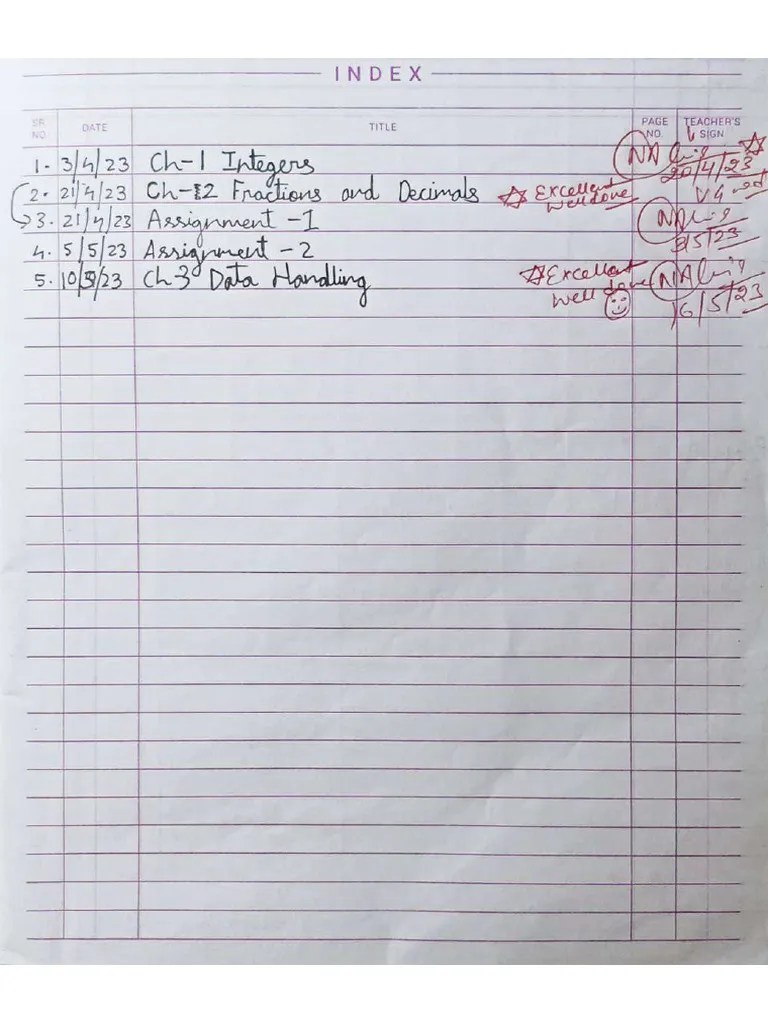 INDEX
SR. NO. DATE TITLE PAGE NO. TEACHER'S SIGN
1. 3/4/23 Ch-1 Integers NA
20/4/23
2. 21/4/23 Ch-2 Fractions and Decimals Excellent
Well done
V. Good
3. 21/4/23 Assignment -1 NA
3/5/23
4. 5/5/23 Assignment - 2
5. 10/5/23 Ch-3 Data Handling Excellent NA
Well done
16/5/23